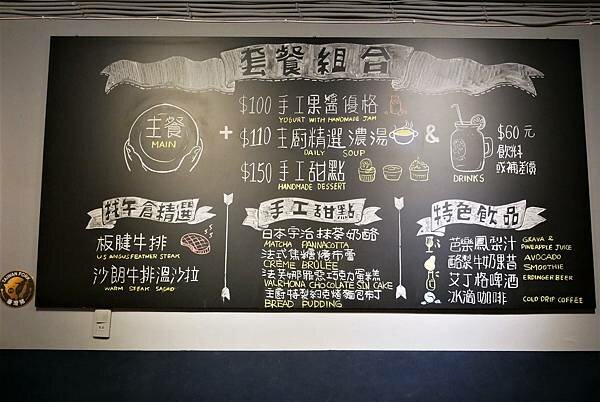 套餐組合
主餐
MAIN
+
$100 手工果醬優格
YOGURT WITH HANDMADE JAM
$110 主廚精選 濃湯
DAILY SOUP
$150 手工甜點
HANDMADE DESSERT
&
DRINKS
$60元
飲料
或補差價
牧午倉精選
板腱牛排
U.S ANGUS FEATHER STEAK
沙朗牛排溫沙拉
WARM STEAK SALAD
手工甜點
日本宇治抹茶奶酪
MATCHA PANNACOTTA
法式焦糖烤布蕾
CREME BRÛLÉE
法芙娜罪惡巧克力蛋糕
VALRHONA CHOCOLATE SIN CAKE
主廚特製約克烤麵包布丁
BREAD PUDDING
特色飲品
芭樂鳳梨汁 GRAVA & PINEAPPLE JUICE
酪梨牛奶果昔 AVOCADO SMOOTHIE
艾丁格啤酒 ERDINGER BEER
冰滴咖啡 COLD DRIP COFFEE